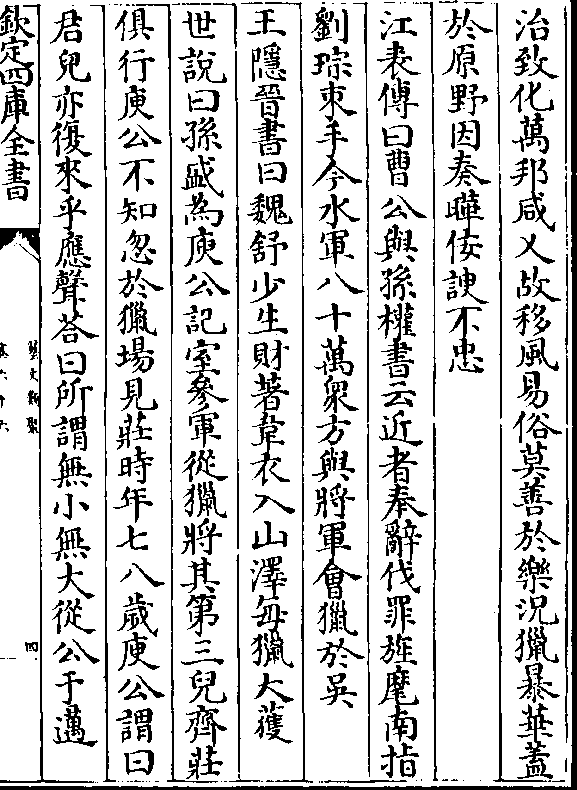 治致化萬邦咸乂故移風易俗莫善於樂況獵暴華蓋
於原野因奏曄佞諛不忠
江表傳曰曹公與孫權書云近者奉辭伐罪旌麾南指
劉琮束手今水軍八十萬衆方與將軍會獵於吳
王隱晉書曰魏舒少生財著韋衣入山澤每獵大獲
世說曰孫盛為庾公記室參軍從獵將其第三兒齊莊
俱行庾公不知忽於獵場見莊時年七八歲庾公謂曰
君兒亦復來乎應聲荅曰所謂無小無大從公于邁
欽定四庫全書
藝文類聚
卷六十六
四